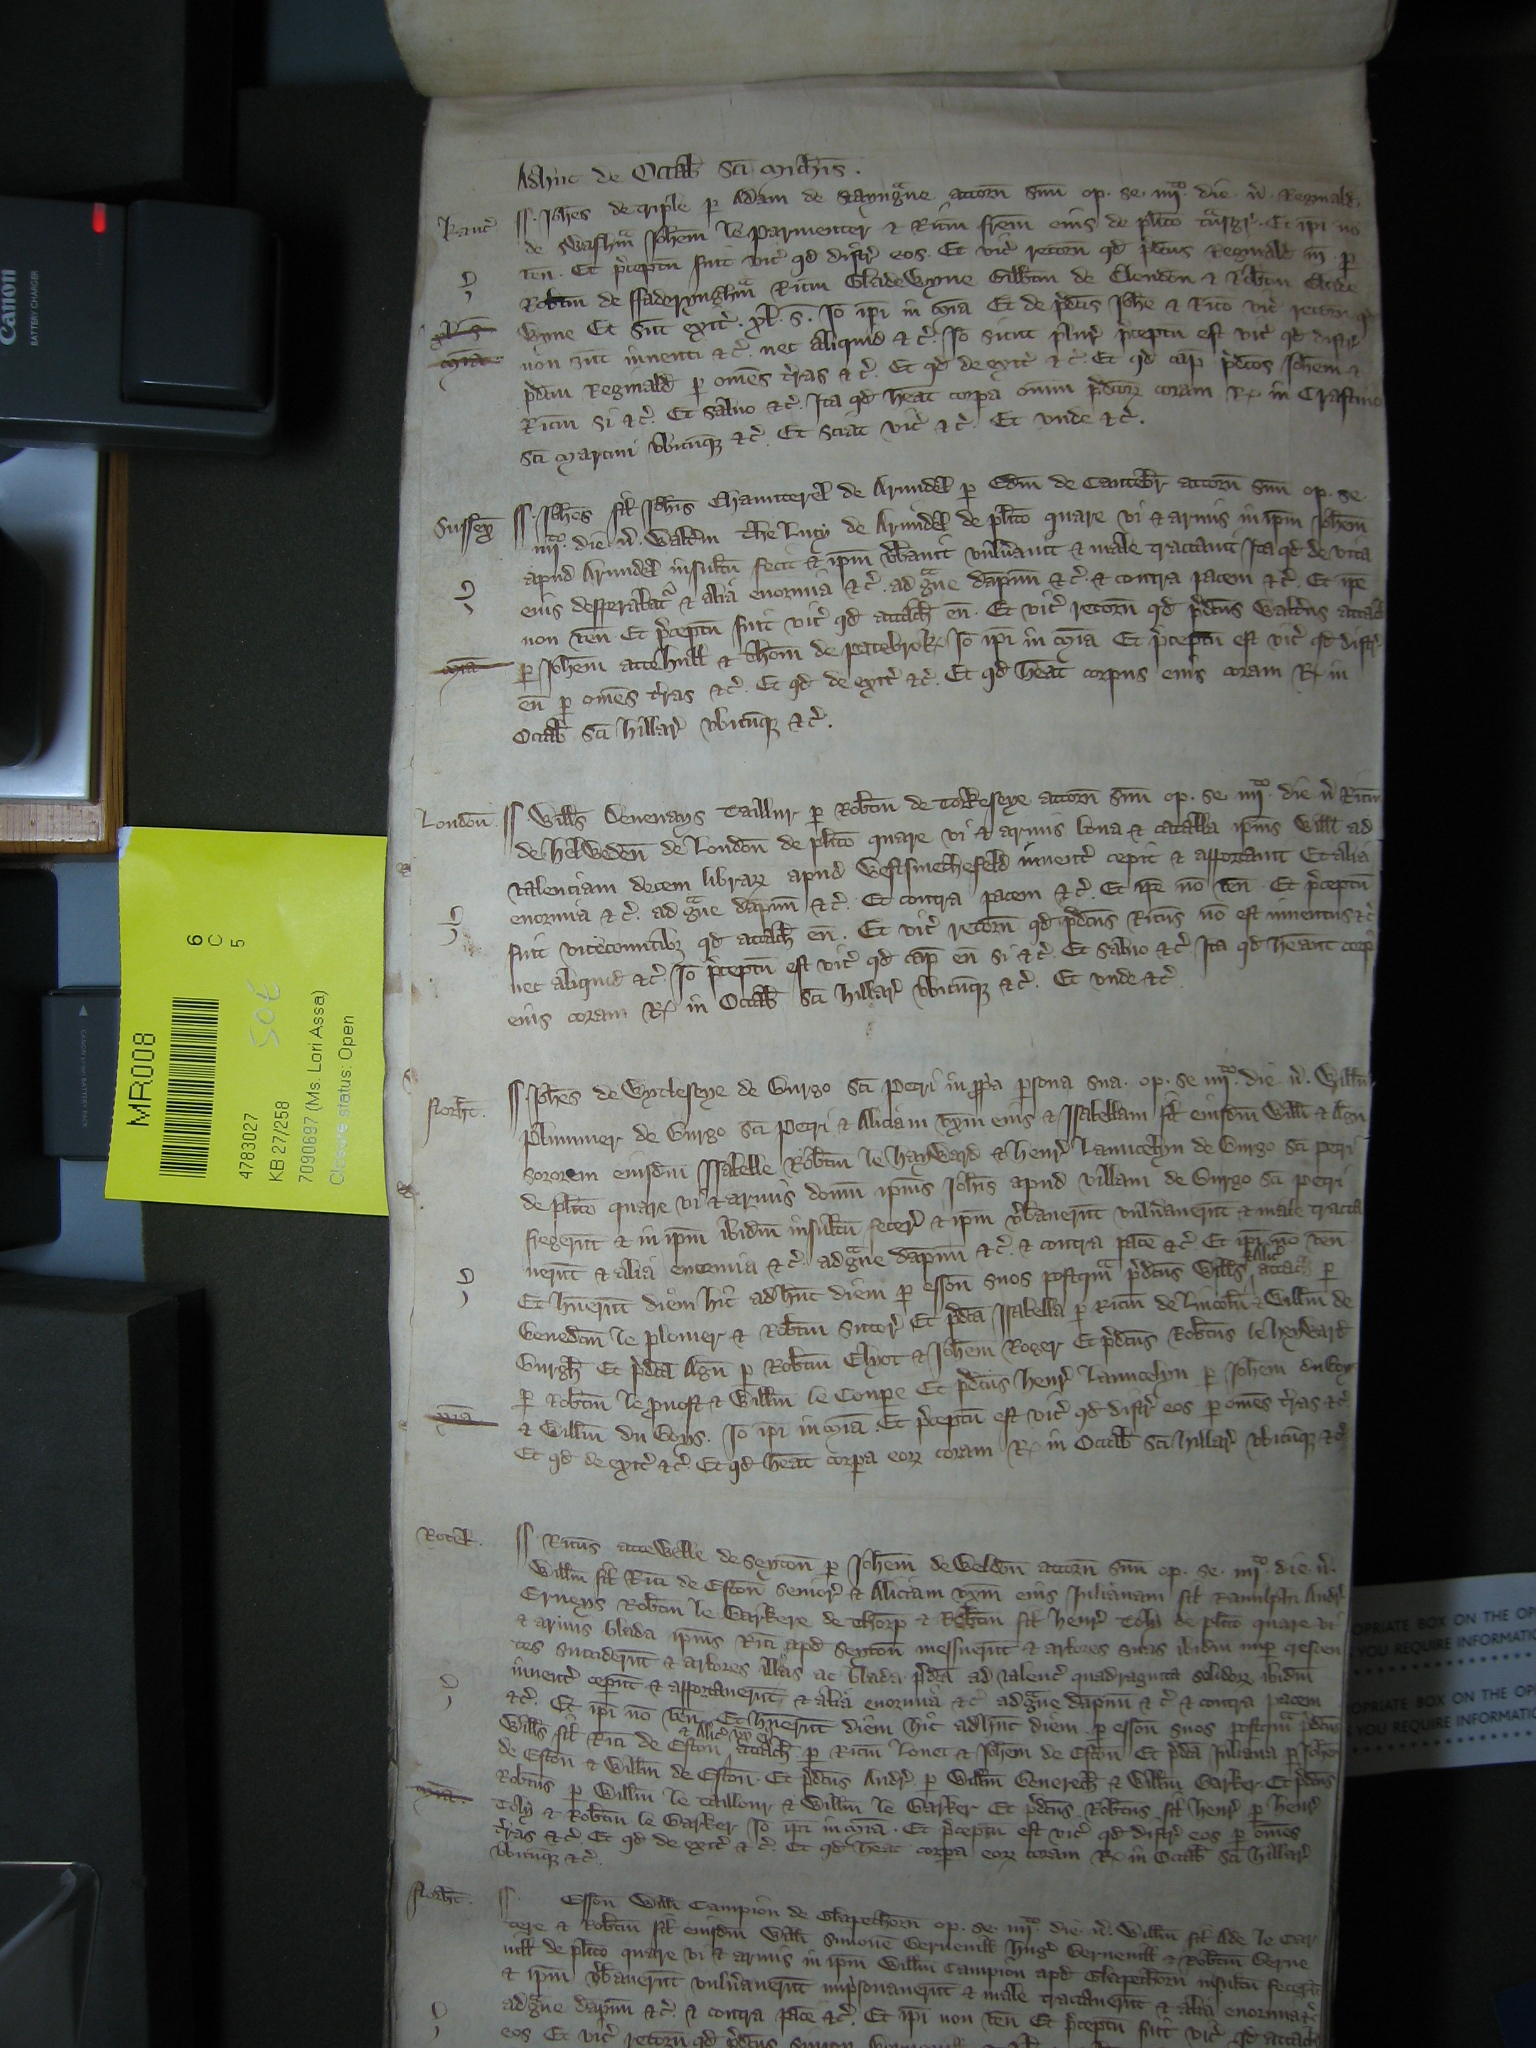 Adhuc de Octab Sci Michis.
Kanc
SS. Johes de Triple p Adam de Stayngue attorn suu op. se. iiijto. die. v. Reginald
de Wasshm Johem le Parmenter & Ricm frem eius de plito tnsgr. Et ipi no
ven. Et pceptu fuit vic qd distr eos. Et vic retorn qd pdcus Reginald m. p
Robtm de ffaderynghm Ricm Gladewyne Gilbtm de Clendon & Robtm Glade
wyne Et sut exit. pl. s. Io ipi in mia Et de pdcis Johe & Rico vic retorn qd
non sut inventi &c. nec aliquid &c. Io sicut plur pceptu est vic qd distr
pdcm Reginald p omes tras &c. Et qd de exit &c. Et qd cap pdcos Johem &
Ricm si &c. Et salvo &c. Ita qd heat corpa omni pdcor coram R in Crastino
Sci Martini ubicuq &c. Et sciat vic &c. Et unde &c.
mia
Sussex
SS. Johes fil Johis Chaunterel de Arundel p Edm de Cantebr attorn suu op. se.
iiijto. die. v. Waltm the Lucy de Arundel de plito quare vi & armis in ipm Johem
apud Arundel insultu fecit & ipm vbavit vulnavit & male tractavit Ita qd de vita
eius despabatr & alia enormia &c. ad gve dapnu &c. & contra pacem &c. Et ipe
non ven Et pceptu fuit vic qd attach eu. Et vic retorn qd pdcus Waltus attach
p Johem attehull & Thom de Patebrok Io ipi in mia Et pceptu est vic qd distr
eu p omes tras &c. Et qd de exit &c. Et qd heat corpus eius coram R in
Octab Sci Hillar ubicuq &c.
mia
London
SS Wills Devenays Taillur p Robtm de Tokeseye attorn suu op. se. iiijto. die v Ricm
de Helweden de London de plito quare vi & armis bona & catalla ipius Willi ad
valenciam decem librar apud Westsmethefeld invent cepit & asportavit Et alia
enormia &c. ad gve dapnu &c. Et contra pacem &c. Et ipe no ven. Et pceptu
fuit vicecomitibz qd attach eu. Et vic retorn qd pdcus Ricus no est inventus &c
nec aliquid &c. Io pceptu est vic qd cap eu si &c. Et salvo &c. Ita qd heant corp
eius coram R in Octab Sci Hillar ubicuq &c. Et unde &c
Norht.
SS. Johes de Wycleseye de Burgo Sci Petri in ppa psona sua. op. se iiijto. die. v. Willm
Plummer de Burgo Sci Petri & Aliciam uxm eius & Isabellam fil eiusdm Willi & Agn
sororem eiusdm Isabelle Robtm le Hayward & Henr Launcelyn de Burgo Sci Petri
de plito quare vi & armis domu ipius Johis apud villam de Burgo Sci Petri
fregerut & in ipm ibidm insultu fecer & ipm vbaverut vulnaverut & male tracta
verut & alia enormia &c. ad gve dapnu &c. & contra pace &c. Et ipi no ven
Et huerut diem hic adhuc diem p esson suos postqm pdcus Wills & Alic attach p
Benedcm le Plomer & Robtm Sutter Et pdca Isabella p Ricm de Lincoln & Willm de
Burgh Et pdca Agn p Robtm Elyot & Johem Roger Et pdcus Robtus le Heyward
p Robtm le Provost & Willm le Coupe Et pdcus Henr Launcelyn p Johem
& Willm du Boys. Io ipi in mia. Et pceptu est vic qd distr eos p omes tras &c
Et qd de exit &c. Et qd heat corpa eor coram R in Octab Sci Hillar ubicuq &c
mia
Rotel.
SS Ricus atteWelle de Seyton p Johem de Weldon attorn suu op. se. iiijto. die v.
Willm fil Rici de Eston senior & Aliciam uxm eius Julianam fil Ranulphi Andr
Erneys Robtm le Barkere de Thorp & Robtm fil Henr Toly de plito quare vi
& armis blada ipius Rici apd Seyton messuerut & arbores suas ibidm nup crescen
tes succiderut & arbores illas ac blada pdca ad valenc quadraginta solidor ibidm
invent ceput & asportaverut & alia enormia &c ad gve dapnu &c & contra pacem
&c. Et ipi no ven. Et huerut diem hic adhuc diem p esson suos postqm pdcus
Wills fil Rici de Eston & Alic ux ei attach p Ricm Lovet & Johem de Eston Et pdca Juliana p Johem
de Eston & Willm de Eston. Et pdcus Andr p Willm Generech & Willm Barker. Et pdcus
Robtus p Willm le Taillour & Willm le Barker Et pdcus Robtus fil Henr p Henr
Toly & Robtm le Barker Io ipi in mia. Et pceptu est vic qd distr eos p omes
tras &c. Et qd de exit &c. Et qd heat corpa eor coram R in Octab Sci Hillar
ubicuq &c.
mia.
Norht.
SS. Esson Willi Campion de Glapethorn op. se. iiijto. die. v. Willm fil Ade le Car
tere & Robtm fil eiusdm Willi Simone Bernevill Hug Bernevill & Robtm Berne
vill de plito quare vi & armis in ipm Willm Campion apd Glapethorn insultu fecerut
& ipm vbaverut vulnaverut impsonaverut & male tractaverut & alia enormia &c.
ad gve dapnu &c. & contra pace &c. Et ipi non ven Et pceptu fuit vic qd attach
eos Et vic retorn qd pdcus Simon
Canon
BATTERY CHARGER
MR008
6
C
5
50t
4783027
KB 27/258
7090697 (Ms. Lori Assa)
Closure status: Open
OPRIATE BOX ON THE OP
YOU REQUIRE INFORMATIO
OPRIATE BOX ON THE OP
YOU REQUIRE INFORMATIO